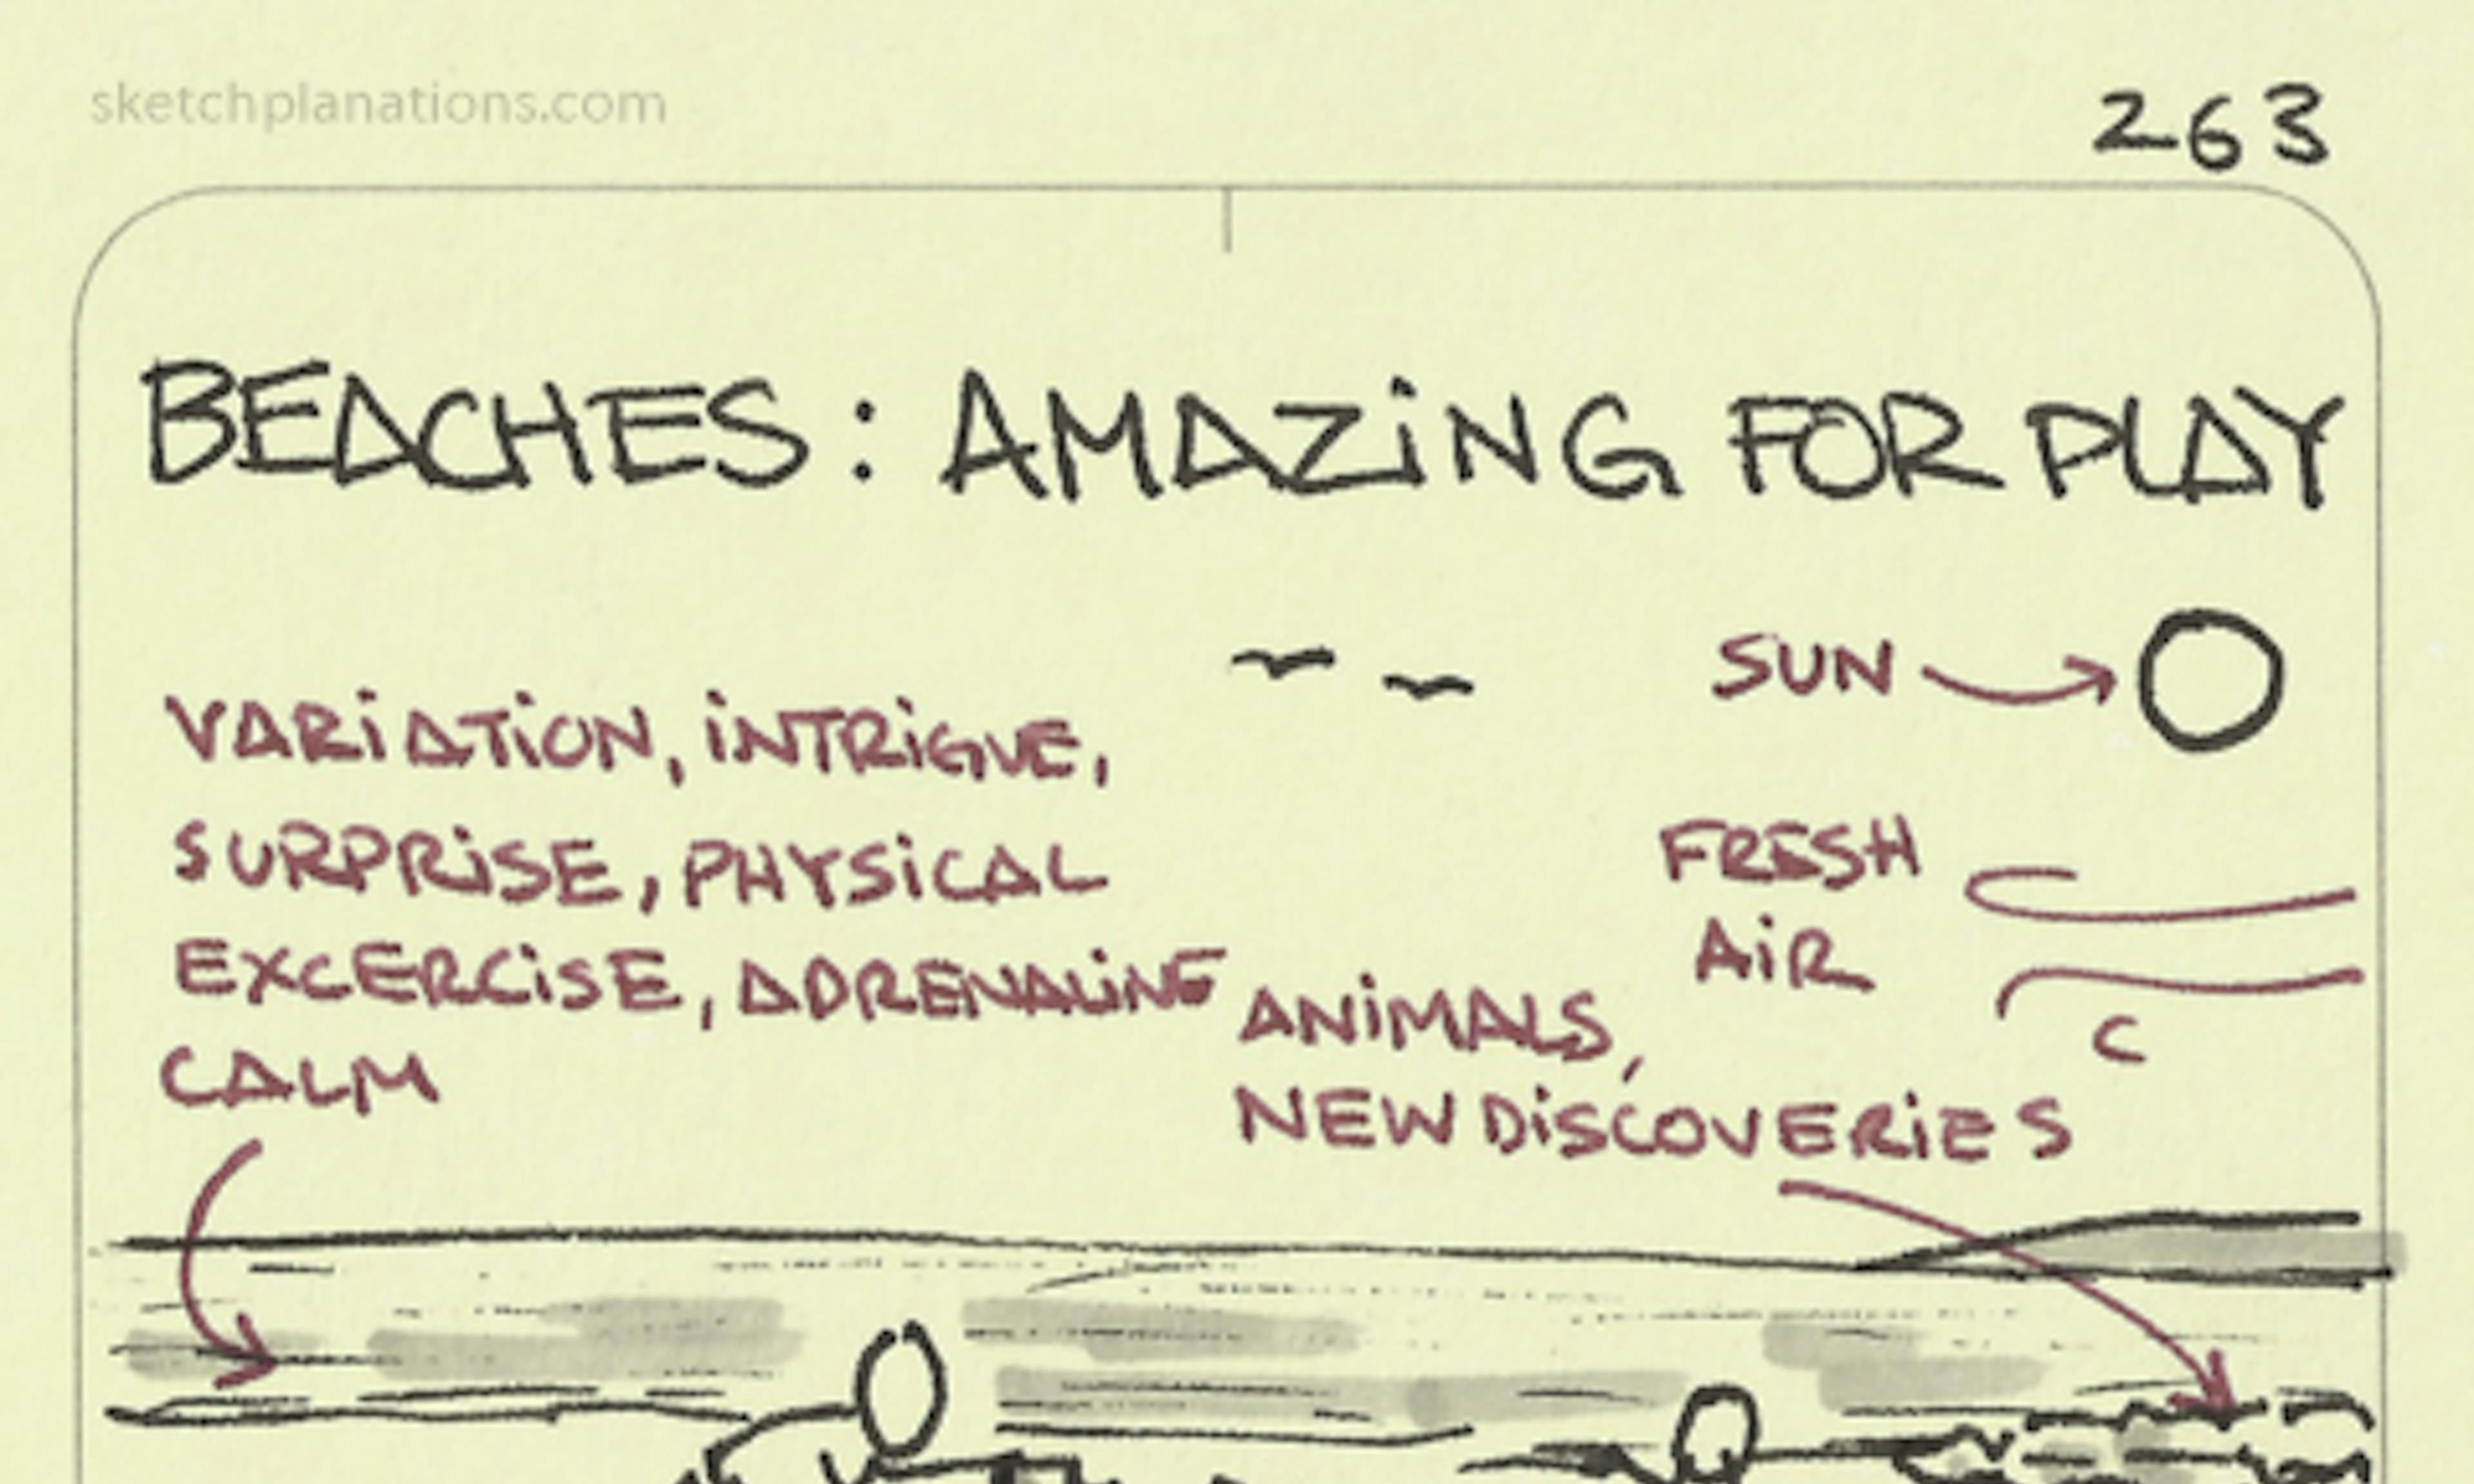 sketchplanations.com
263
BEACHES: AMAZiNG FOR PLAY
SUN
VARiATiON, iNTRiGUE,
SURPRiSE, PHYSiCAL
EXCERCiSE, ADRENALiNE
CALM
FRESH
AiR
ANiMALS,
NEW DiSCOVERiES